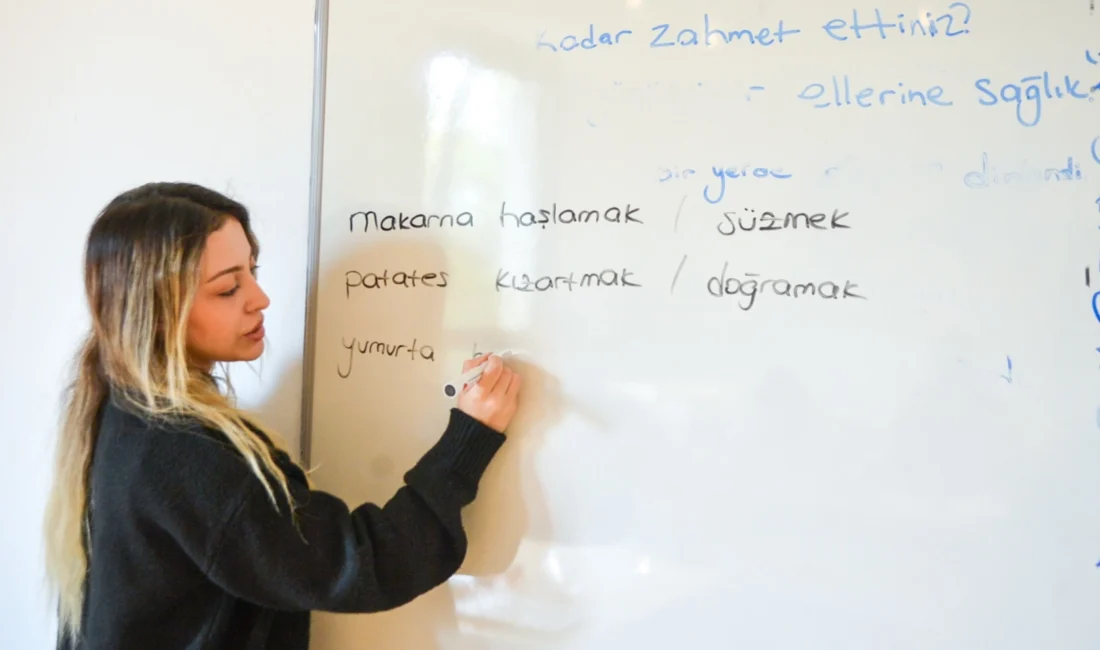 kadar zahmet ettiniz?
ellerine sağlık
bir yerde dinlendi
makarna haşlamak / süzmek
patates kızartmak / doğramak
yumurta